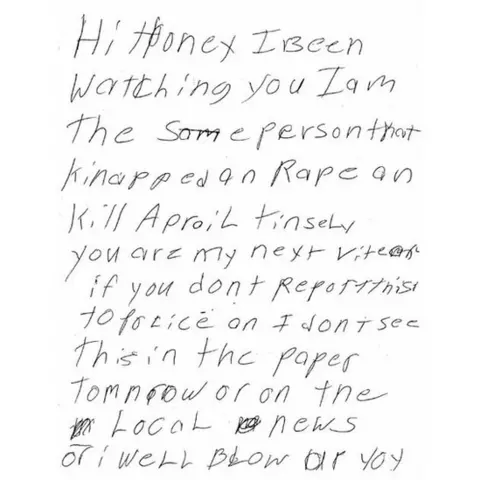 Hi Honey I Been
Watching you I am
the Some person that
kinapped an Rape an
kill Aproil tinsely
you are my next vitear
if you dont Report this
to police an I dont see
this in the paper
tomnrow or on the
Local news
or i well Blow ur yoy